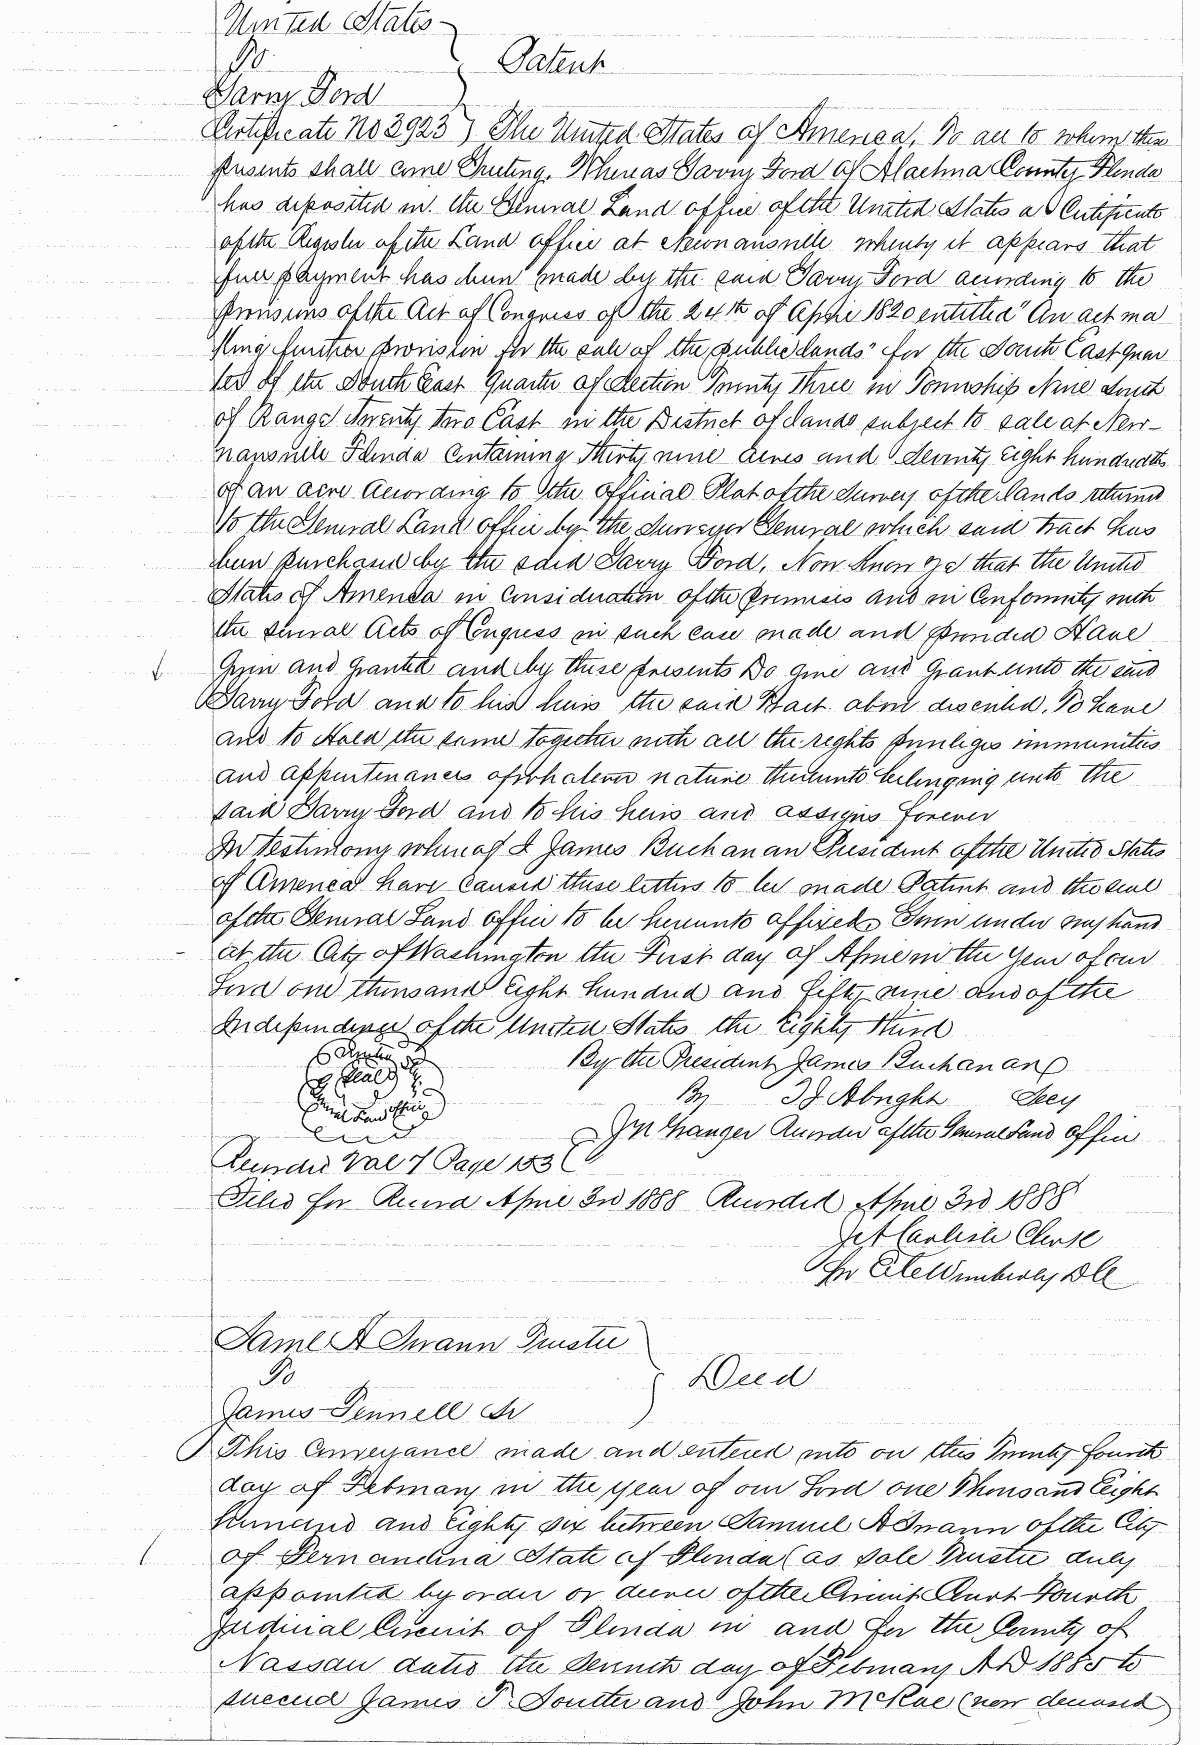 United States
To
Garry Ford
Patent
Certificate No 3923 } The United States of America, To all to whom these
presents shall come Greeting. Whereas Garry Ford of Alachua County Florida
has deposited in the General Land office of the United States a Certificate
of the Register of the Land office at Newnansville whereby it appears that
full payment has been made by the said Garry Ford according to the
provisions of the Act of Congress of the 24th of April 1820 entitled "An act ma
king further provision for the sale of the public lands" for the South East quar
ter of the South East Quarter of Section Twenty Three in Township Nine South
of Range Twenty two East in the District of lands subject to sale at New-
nansville Florida Containing Thirty nine Acres and Seventy Eight hundredths
of an acre According to the official Plat of the Survey of the lands returned
to the General Land office by the Surveyor General which said tract has
been purchased by the said Garry Ford, Now Know Ye that the United
States of America in Consideration of the Premises and in Conformity with
the several Acts of Congress in such case made and provided Have
Given and Granted and by these presents Do give and Grant unto the said
Garry Ford and to his heirs the said Tract above described, To have
and to Hold the same together with all the rights privileges immunities
and appurtenances of whatever nature thereunto belonging unto the
said Garry Ford and to his heirs and assigns forever
In Testimony whereof I James Buchanan President of the United States
of America have caused these letters to be made Patent and the seal
of the General Land office to be hereunto affixed. Given under my hand
at the City of Washington the First day of April in the Year of our
Lord one thousand Eight hundred and fifty nine and of the
Independence of the United States the Eighty third
By the President James Buchanan
Seal
General Land office
By T J Albright Secy
J N Granger Recorder of the General Land office
Recorded Vol 7 Page 153
Filed for Record April 3rd 1888 Recorded April 3rd 1888
J A Carlisle Clerk
Pr C C Wimberly D C
Saml A Swann Trustee
To
Deed
James Pennell Sr
This Conveyance made and entered into on this Twenty fourth
day of February in the year of our Lord one Thousand Eight
Hundred and Eighty six between Samuel A Swann of the City
of Fernandina State of Florida (as sole Trustee duly
appointed by order or decree of the Circuit Court Fourth
Judicial Circuit of Florida in and for the County of
Nassau dated the Seventh day of February A D 1885 to
succeed James T. Soutter and John McRae (now deceased)